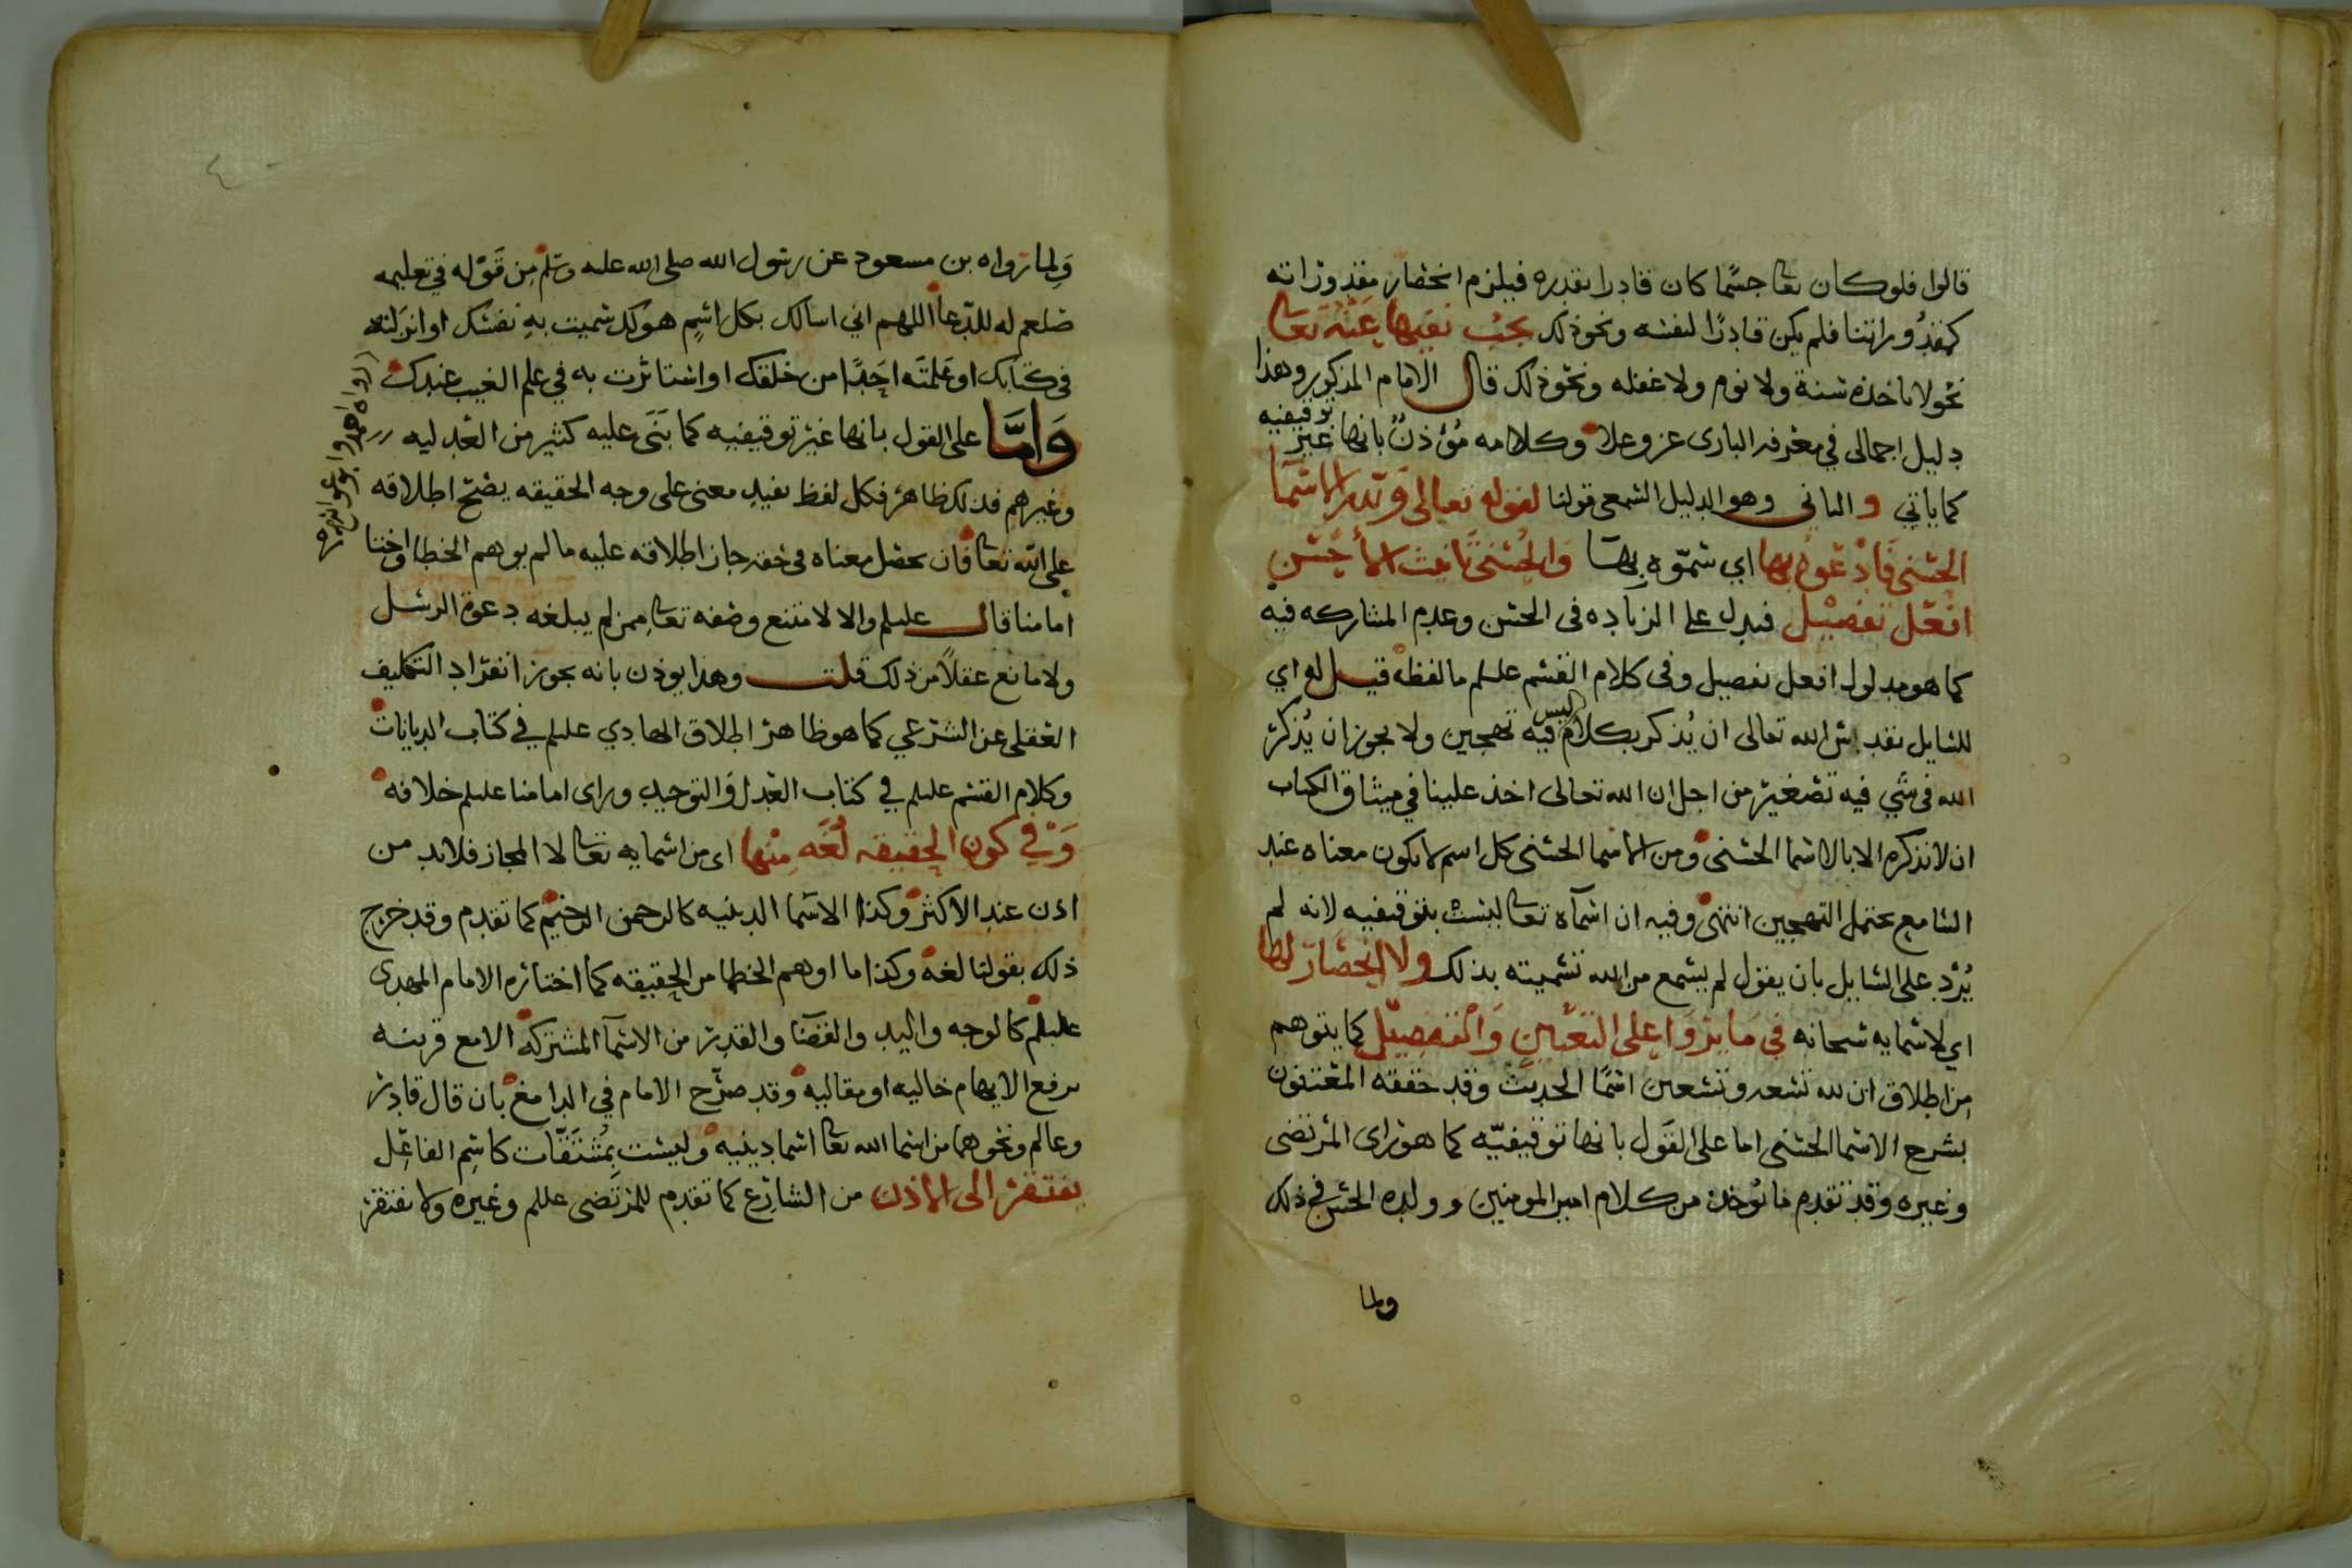 قالوا فلو كان تعا جسما كان قادرا بقدره فيلزم انحصار مقدوراته
كمقدوراتنا فلم يكن قادرا لنفسه ونحو ذلك يجب نفيها عنه تعا
نحو لا تاخذه سنة ولا نوم ولا غفله ونحو ذلك قال الامام المذكور وهذا
دليل اجمالي في معرفه الباري عز وعلا وكلامه مؤذن بانها غير توقيفيه
كما ياتي والثاني وهو الدليل السمعي قولنا لقوله تعالى ولله الاسما
الحسنى فادعوه بها اي سموه بها والحسنى تانيث الأحسن
افعل تفضيل فيدل على الزياده في الحسن وعدم المشاركه فيه
كما هو مدلول افعل تفضيل وفي كلام القسم عليلم ما لفظه قيل له اي
للسايل تقدس الله تعالى ان يذكر بكلام ليس فيه تهجين ولا يجوز ان يذكر
الله في شي فيه تصغير من اجل ان الله تعالى اخذ علينا في ميثاق الكتاب
ان لا نذكره الا بالاسما الحسنى ومن الاسما الحسنى كل اسم لا يكون معناه عند
السامع يحتمل التهجين انتهى وفيه ان اسمآه تعا ليست بتوقيفيه لانه لم
يرد على السايل بان يقول لم يسمع من الله تسميته بذلك ولا انحصار لها
اي لاسمايه سبحانه في ما يروا على التعيين والتفصيل كما يتوهم
من اطلاق ان لله تسعه وتسعين اسما الحديث وقد حققه المعتنون
بشرح الاسما الحسنى اما على القول بانها توقيفيه كما هو راي المرتضى
وغيره وقد تقدم ما يوخذ من كلام امير المومنين وولده الحسن في ذلك
ولما
ولما رواه بن مسعود عن رسول الله صلى الله عليه وسلم من قوله في تعليمه
صلعم له للدعا اللهم اني اسالك بكل اسم هو لك سميت به نفسك او انزلته
في كتابك او علمته احدا من خلقك او استاثرت به في علم الغيب عندك
رواه احمد وابو عوانه وغيره
واما على القول بانها غير توقيفيه كما بنى عليه كثير من العدليه
وغيرهم فذلك ظاهر فكل لفظ يفيد معنى على وجه الحقيقه يصح اطلاقه
على الله تعا فان حصل معناه في حقه جاز اطلاقه عليه ما لم يوهم الخطا واختا
امامنا قال عليلم والا لامتنع وصفه تعا ممن لم يبلغه دعوة الرسل
ولا مانع عقلا من ذلك قلت وهذا يوذن بانه يجوز انفراد التكليف
العقلي عن الشرعي كما هو ظاهر اطلاق الهادي عليلم في كتاب الديانات
وكلام القسم عليلم في كتاب العدل والتوحيد وراى امامنا عليلم خلافه
وفي كون الحقيقه لغه منها اى من اسمايه تعا لا المجاز فلابد من
اذن عند الاكثر وكذا الاسما الدينيه كالرحمن الرحيم كما تقدم وقد خرج
ذلك بقولنا لغه وكذا ما اوهم الخطا من الحقيقه كما اختاره الامام المهدى
عليلم كالوجه واليد والقضا والقدر من الاسمآ المشتركه الا مع قرينه
ترفع الايهام حاليه او مقاليه وقد صرح الامام في الدامغ بان قال قادر
وعالم ونحوهما من اسما الله تعا اسما دينيه وليست بمشتقات كاسم الفاعل
يفتقر الى الاذن من الشارع كما تقدم للمرتضى عللم وغيره ولا نفتقر